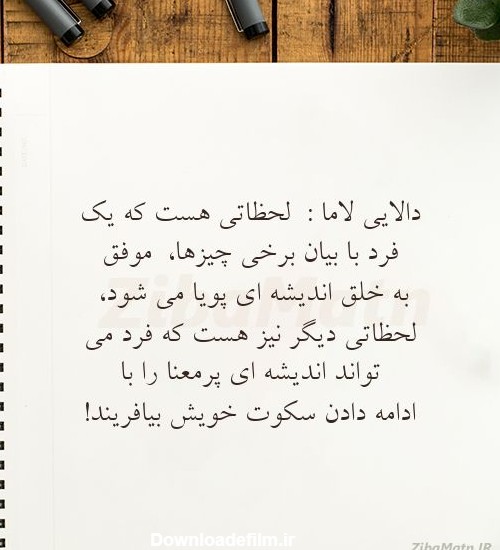 دالایی لاما : لحظاتی هست که یک
فرد با بیان برخی چیزها، موفق
به خلق اندیشه ای پویا می شود،
لحظاتی دیگر نیز هست که فرد می
تواند اندیشه ای پرمعنا را با
ادامه دادن سکوت خویش بیافریند!
ZibaMatn
Downloadefilm.ir
ZibaMatn.IR